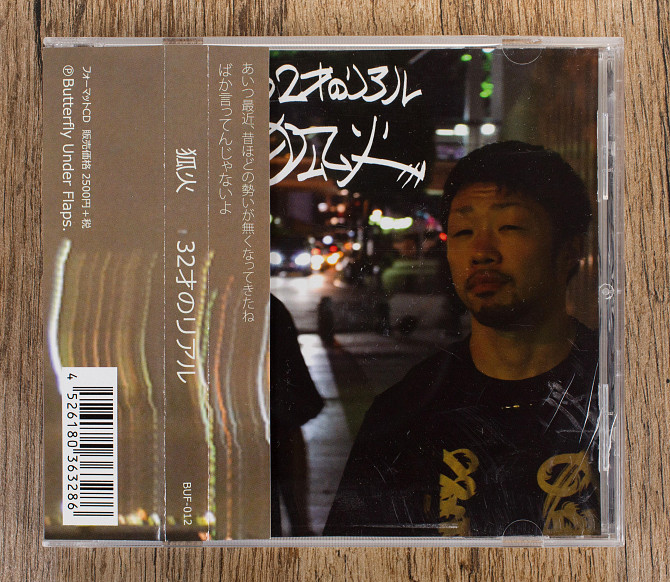 フォーマットCD 販売価格 2500円+税
℗Butterfly Under Flaps.
4 526180 363286
狐火 32才のリアル
BUF-012
あいつ最近、昔ほどの勢いが無くなってきたね
ばか言ってんじゃないよ
32才のリアル
狐火